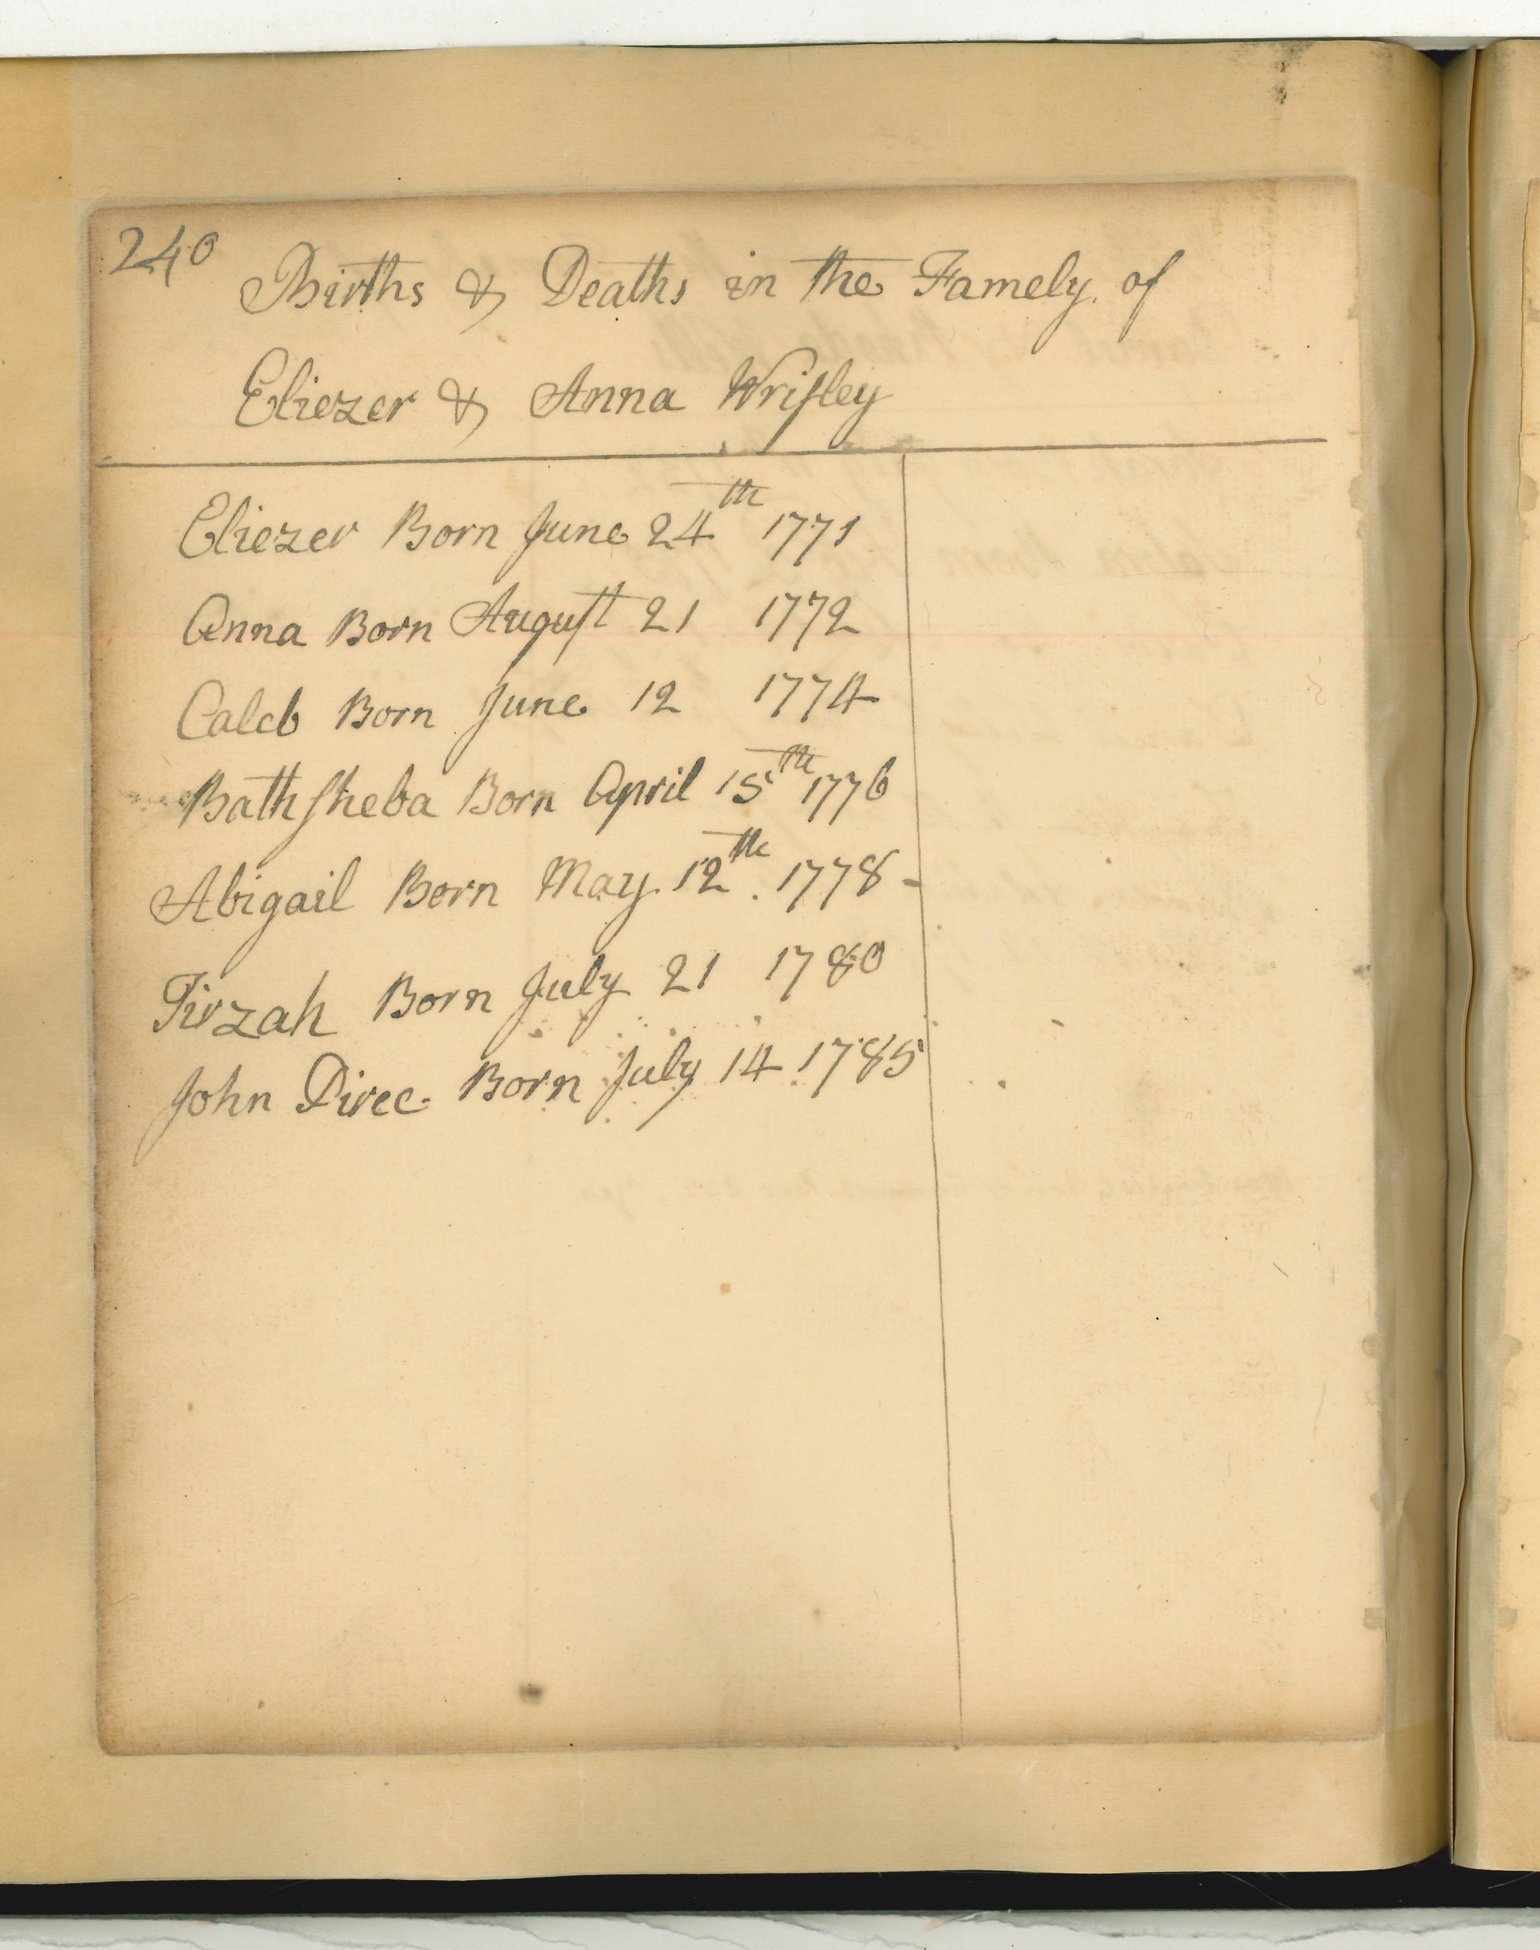 240
Births & Deaths in the Famely of
Eliezer & Anna Wriſley
Eliezer Born June 24th 1771
Anna Born Auguſt 21 1772
Caleb Born June 12 1774
Bathſheba Born April 15th 1776
Abigail Born May 12th. 1778-
Tirzah Born July 21 1780
John Diree Born July 14 1785